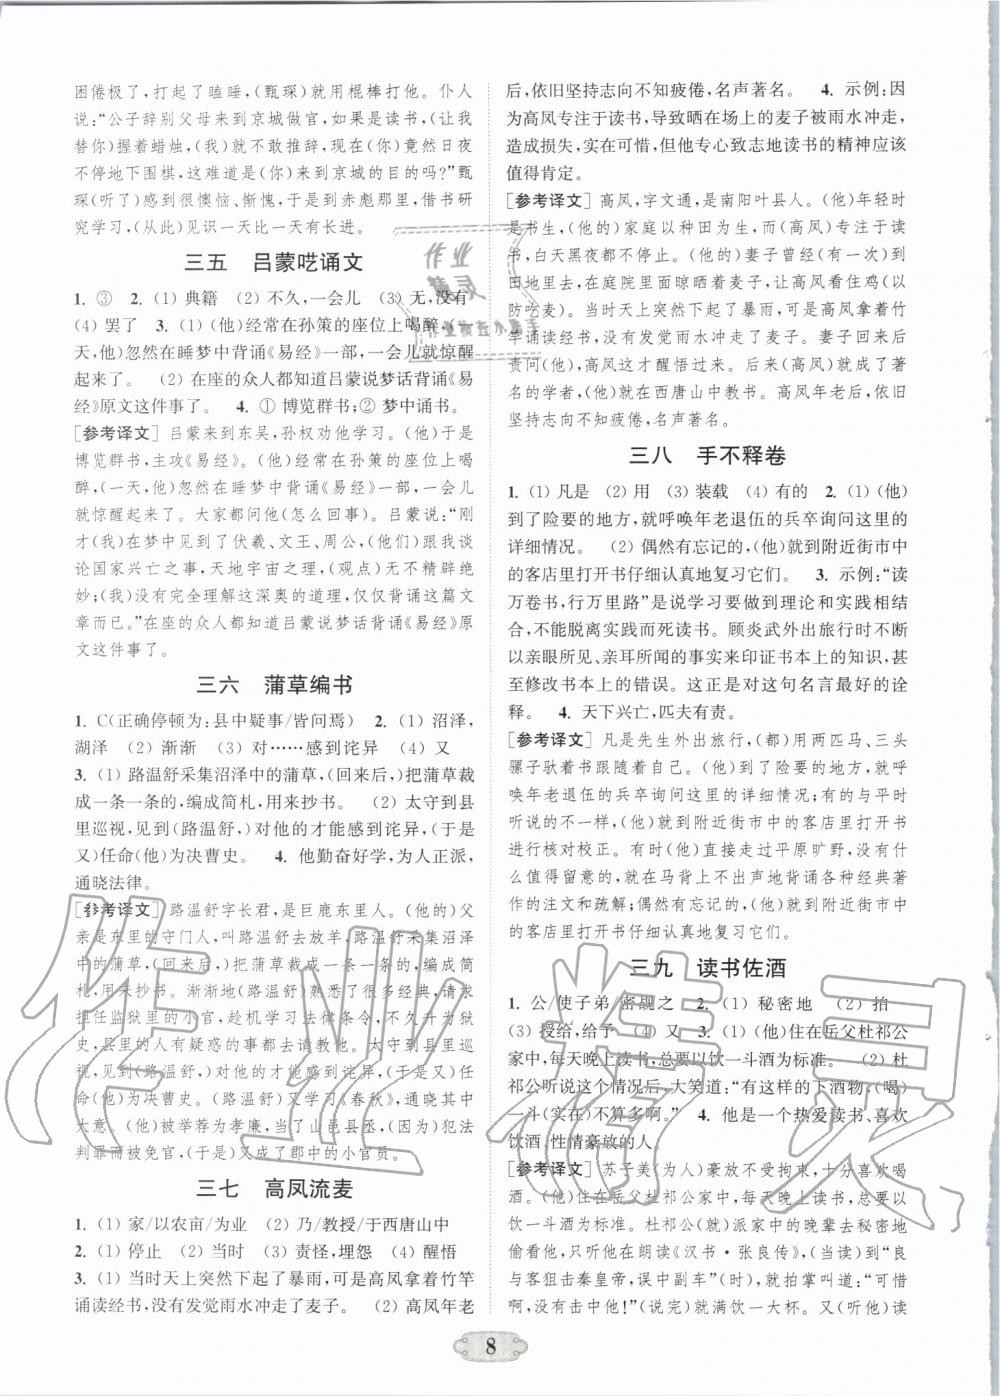 困倦极了,打起了瞌睡,(甄琛)就用棍棒打他。仆人
说:“公子辞别父母来到京城做官,如果是读书,(让我
替你)握着蜡烛,(我)就不敢推辞。现在(你)竟然日夜
不停下围棋,这难道是(你)来到京城的目的吗?”甄
琛(听了)感到很懊恼、惭愧,于是到赤彪那里,借书研
究学习,(从此)见识一天比一天有长进。
三五 吕蒙呓诵文
1. ③ 2. (1) 典籍 (2) 不久,一会儿 (3) 无,没有
(4) 罢了 3. (1) (他)经常在孙策的座位上喝醉,(一
天,他)忽然在睡梦中背诵《易经》一部,一会儿就惊醒
起来了。 (2) 在座的众人都知道吕蒙说梦话背诵《易
经》原文这件事了。 4. ① 博览群书;② 梦中诵书。
[参考译文] 吕蒙来到东吴,孙权劝他学习。(他)于是
博览群书,主攻《易经》。(他)经常在孙策的座位上喝
醉,(一天,他)忽然在睡梦中背诵《易经》一部,一会儿
就惊醒起来了。大家都问他(怎么回事)。吕蒙说:“刚
才(我)在梦中见到了伏羲、文王、周公,(他们)跟我谈
论国家兴亡之事,天地宇宙之理,(观点)无不精辟绝
妙;(我)没有完全理解这深奥的道理,仅仅背诵这篇文
章而已。”在座的众人都知道吕蒙说梦话背诵《易经》原
文这件事了。
三六 蒲草编书
1. C(正确停顿为:县中疑事/皆问焉) 2. (1) 沼泽,
湖泽 (2) 渐渐 (3) 对……感到诧异 (4) 又
3. (1) 路温舒采集沼泽中的蒲草,(回来后,)把蒲草裁
成一条一条的,编成简札,用来抄书。 (2) 太守到县
里巡视,见到(路温舒,)对他的才能感到诧异,(于是
又)任命(他)为决曹史。 4. 他勤奋好学,为人正派,
通晓法律。
[参考译文] 路温舒字长君,是巨鹿东里人。(他的)父
亲是东里的守门人,叫路温舒去放羊,路温舒采集沼泽
中的蒲草,(回来后,)把蒲草裁成一条一条的,编成简
札,用来抄书。渐渐地(路温舒)熟悉了很多经典,请求
担任监狱里的小官,趁机学习法律条令,不久升为狱
史,县里的人有疑惑的事都去请教他。太守到县里巡
视,见到(路温舒,)对他的才能感到诧异,(于是又)任命
(他)为决曹史。(路温舒)又学习《春秋》,通晓其中
大意。(他)被举荐为孝廉,当了山邑县丞,(因为)犯法
判罪被免官,(于是)又成了郡中的小官员。
三七 高凤流麦
1. (1) 家/以农亩/为业 (2) 乃/教授/于西唐山中
2. (1) 停止 (2) 当时 (3) 责怪,埋怨 (4) 醒悟
3. (1) 当时天上突然下起了暴雨,可是高凤举着竹竿
诵读经书,没有发觉雨水冲走了麦子。 (2) 高凤年老
后,依旧坚持志向不知疲倦,名声著名。 4. 示例:因
为高凤专注于读书,导致晒在场上的麦子被雨水冲走,
造成损失,实在可惜,但他专心致志地读书的精神应该
值得肯定。
[参考译文] 高凤,字文通,是南阳叶县人。(他)年轻时
是书生,(他的)家庭以种田为生,(高凤)专注于读
书,白天黑夜都不停止。(他的)妻子曾经(有一次)到
田地里,在庭院里面晾晒了麦子,让高凤看住鸡(以
防吃麦)。当时天上突然下起了暴雨,可是高凤举着竹
竿诵读经书,没有发觉雨水冲走了麦子。妻子回来后
责问(他),(高凤)这才醒悟过来。后来(高凤)成为
著名的学者,就在西唐山中教书。高凤年老后,依旧
坚持志向不知疲倦,名声著名。
三八 手不释卷
1. (1) 凡是 (2) 用 (3) 装载 (4) 有的 2. (1) (他)
到了险要的地方,就呼唤年老退伍的兵卒询问这里的
详细情况。 (2) 偶然有忘记的,(他)就到附近街市中
的客店里打开书仔细认真地复习它们。 3. 示例:“读
万卷书,行万里路”是说学习要做到理论和实践相结
合,不能脱离实践而死读书。顾炎武外出旅行时不断
以亲眼所见、亲耳所闻的事实来印证书本上的知识,甚
至修改书本上的错误。这正是对这句名言最好的诠
释。 4. 天下兴亡,匹夫有责。
[参考译文] 凡是先生外出旅行,(都)用两匹马、三头
骡子驮着书跟随自己。(他)到了险要的地方,就呼
唤年老退伍的兵卒询问这里的详细情况。有的与平时
听说的不一样,(他)就到附近街市中的客店里打开书
进行核对校正。有时(他)直接走过平原旷野,没有什
么值得留意的,就在马背上不出声地背诵各种经典著
作的注文和疏解;偶然有忘记的,(他)就到附近街市中
的客店里打开书仔细认真地复习它们。
三九 读书佐酒
1. 公/使子弟/密觇之 2. (1) 秘密地 (2) 拍
(3) 授给,给予 (4) 又 3. (1) (他)住在岳父杜祁公
家中,每天晚上读书,总要以饮一斗酒为标准。 (2) 杜
祁公听说这个情况后,大笑道:“有这样的下酒物,(喝)
一斗(实在)不算多啊。” 4. 他是一个热爱读书,喜欢
饮酒,性情豪放的人。
[参考译文] 苏子美(为人)豪放不受拘束,十分喜欢喝
酒。(他)住在岳父杜祁公家中,每天晚上读书,总要以
饮一斗酒为标准。杜祁公(就)派家中的晚辈去秘密地
偷看他,只听他在朗读《汉书·张良传》,(当读)到“良
与客狙击秦皇帝,误中副车”(时),就拍掌叫道:“可惜
啊,没有击中他!”(说完)就满饮一大杯。又(听他)读
8
作业
精灵
作业精灵